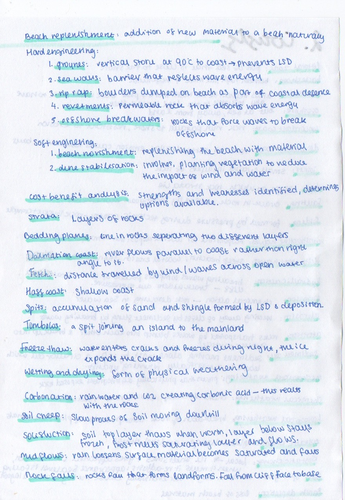 Beach replenishment: addition of new material to a beach naturally
Hard engineering:
1. groynes: vertical stone at 90°c to coast → prevents LSD
2. sea walls: barrier that reflects wave energy
3. rip rap: boulders dumped on beach as part of coastal defence
4. revetments: permeable rock that absorbs wave energy
5. offshore breakwaters: rocks that force waves to break
offshore
Soft engineering,
1. beach nourishment: replenishing the beach with material
2. dune stabilisation: involves planting vegetation to reduce
the impact of wind and water
cost benefit analysis: strengths and weaknesses identified, determines
options available.
strata: Layers of rocks
Bedding planes: line in rocks seperating two different layers
Dalmation coast: river flows parallel to coast rather than right
angle to it.
Fetch: distance travelled by wind/waves across open water
Haff coast: shallow coast
Spits: accumulation of sand and shingle formed by LSD & deposition.
Tombolos: a spit joining an island to the mainland
Freeze thaw: water enters cracks and freezes during night, the ice
expands the crack
Wetting and drying: form of physical weathering
Carbonation: rain water and CO2 creating carbonic acid – this reacts
with the rock
Soil creep: slow process of soil moving downhill
Solifluction: soil top layer thaws when warm, layer below stays
frozen, frost melts saturating layer and flows.
Mud flows: rain loosens surface, material becomes saturated and falls
Rock falls: rocks fall that forms landforms. Fall from cliff face to base